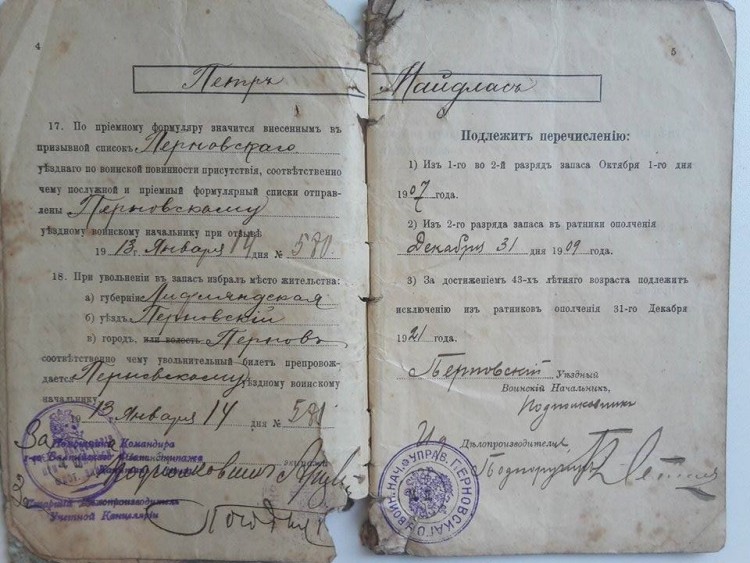 4
Петръ
17. По пріемному формуляру значится внесеннымъ въ
призывной списокъ Перновскаго
уѣзднаго по воинской повинности присутствія, соотвѣтственно
чему послужной и пріемный формулярный списки отправ-
лены Перновскому
уѣздному воинскому начальнику при отзывѣ
1913 г. Января 14 дня № 580.
18. При увольненіи въ запасъ избралъ мѣсто жительства:
а) губернію Лифляндская
б) уѣздъ Перновскій
в) городъ, или волость Перновъ
соотвѣтственно чему увольнительный билетъ препровож-
дается Перновскому уѣздному воинскому
начальнику
1913 г. Января 14 дня № 581
Помощникъ Командира
1-го Балтійскаго Флотскаго Экипажа
экипажа
Старшій Дѣлопроизводитель
Учетной Канцеляріи
5
Майдласъ
Подлежитъ перечисленію:
1) Изъ 1-го во 2-й разрядъ запаса Октября 1-го дня
1907 года.
2) Изъ 2-го разряда запаса въ ратники ополченія
Декабря 31 дня 1909 года.
3) За достиженіемъ 43-хъ лѣтняго возраста подлежитъ
исключенію изъ ратниковъ ополченія 31-го Декабря
1921 года.
Перновскій Уѣздный
Воинскій Начальникъ,
Подполковникъ
И д Дѣлопроизводителя
Подпоручикъ
УПРАВ. ПЕРНОВСКАГО ВОИН. НАЧ.